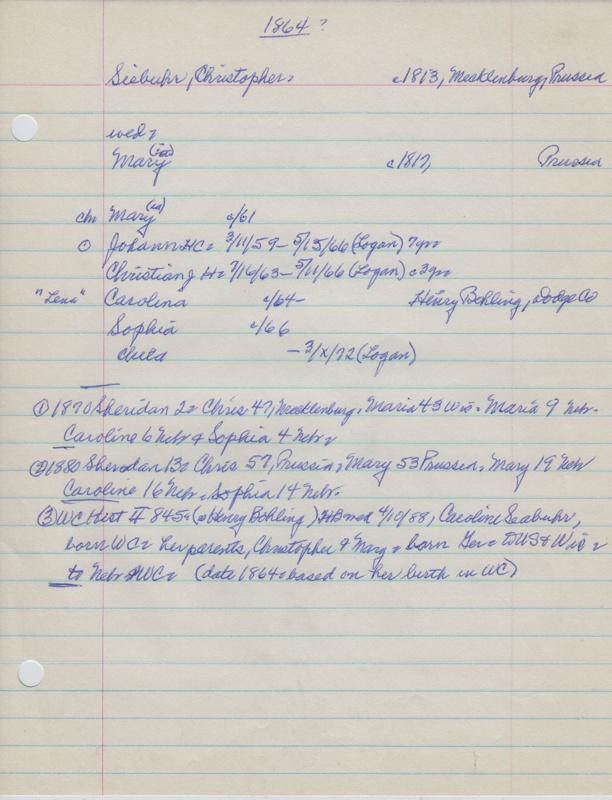 1864?
Siebuhr, Christopher, c1813, Mecklenburg, Prussia
wed,
Mary(ia) c1817, Prussia
ch Mary(ia) c/61
① Johann HC= 3/11/59 - 5/15/66 (Logan) 7yr
Christian J H= 7/16/63 - 5/11/66 (Logan) c3yr
"Lena" Carolina c/64- Henry Bohling, Dodge Co
Sophia c/66
child - 3/x/72 (Logan)
① 1870 Sheridan 2= Chris 47, Mecklenburg, Maria 43 Wis. Maria 9 Nebr.
Caroline 6 Nebr & Sophia 4 Nebr.
② 1880 Sheridan 13= Chris 57, Prussia, Mary 53 Prussia, Mary 19 Nebr
Caroline 16 Nebr, Sophia 14 Nebr.
③ WC Hist II 845= (Henry Bohling) HB med 4/10/88, Caroline Seabuhr,
born WC= her parents, Christopher & Mary = born Ger= to US & Wis =
to Nebr & WC= (date 1864 based on her birth in WC)